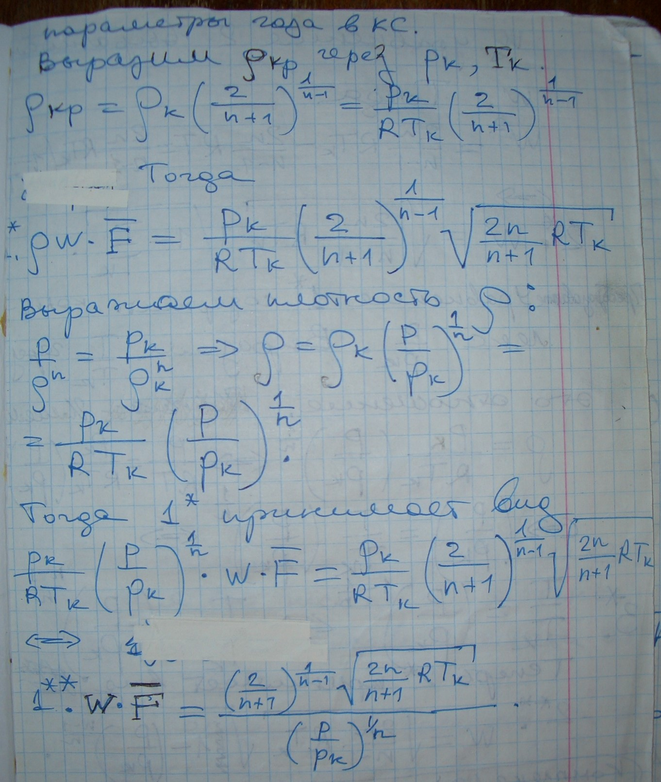 параметры года в КС.
Выразим ρкр через pк, Tк.
ρкр = ρк (2/(n+1))^(1/(n-1)) = pк/(RTк) (2/(n+1))^(1/(n-1))
Тогда
* ρw·F̅ = pк/(RTк) (2/(n+1))^(1/(n-1)) √(2n/(n+1) RTк)
Выражаем плотность ρ:
p/ρ^n = pк/ρк^n => ρ = ρк (p/pк)^(1/n) =
= pк/(RTк) (p/pк)^(1/n).
Тогда 1* принимает вид
pк/(RTк) (p/pк)^(1/n) · w·F̅ = pк/(RTк) (2/(n+1))^(1/(n-1)) √(2n/(n+1) RTк)
<=>
1**. w·F̅ = ((2/(n+1))^(1/(n-1)) √(2n/(n+1) RTк)) / (p/pк)^(1/n) .